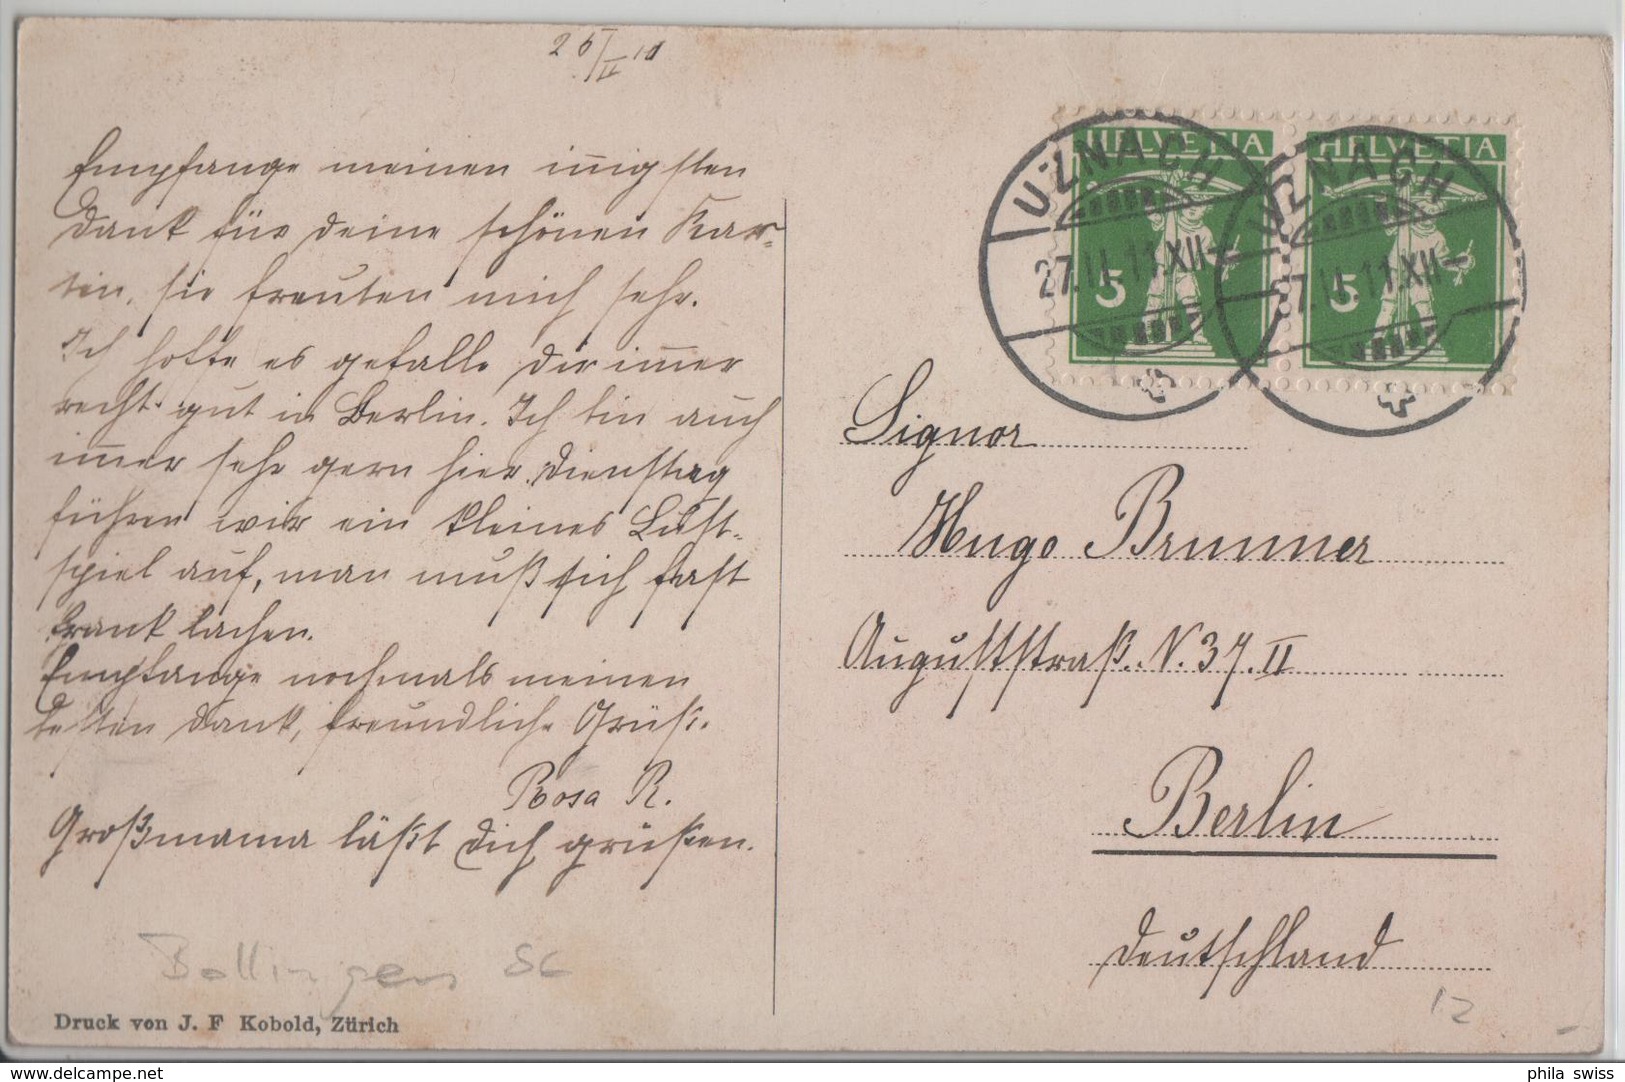 26/II 11
Empfange meinen innigsten
Dank für deine schönen Kar-
ten, sie freuten mich sehr.
Ich hoffe es gefalle dir immer
recht gut in Berlin. Ich bin auch
immer sehr gern hier. Dienstag
führen wir ein kleines Lust-
spiel auf, man muß sich fast
krank lachen.
Empfange nochmals meinen
besten Dank, freundliche Grüße.
Rosa R.
Großmama läßt dich grüßen.
Bollingen SG
Druck von J. F Kobold, Zürich
HELVETIA
HELVETIA
5
5
UZNACH
27.II.11.XII-
UZNACH
7.II.11.XII-
Signor
Hugo Brunner
Auguststraß. N. 37. II
Berlin
Deutschland
12
delcampe.net
phila_swiss